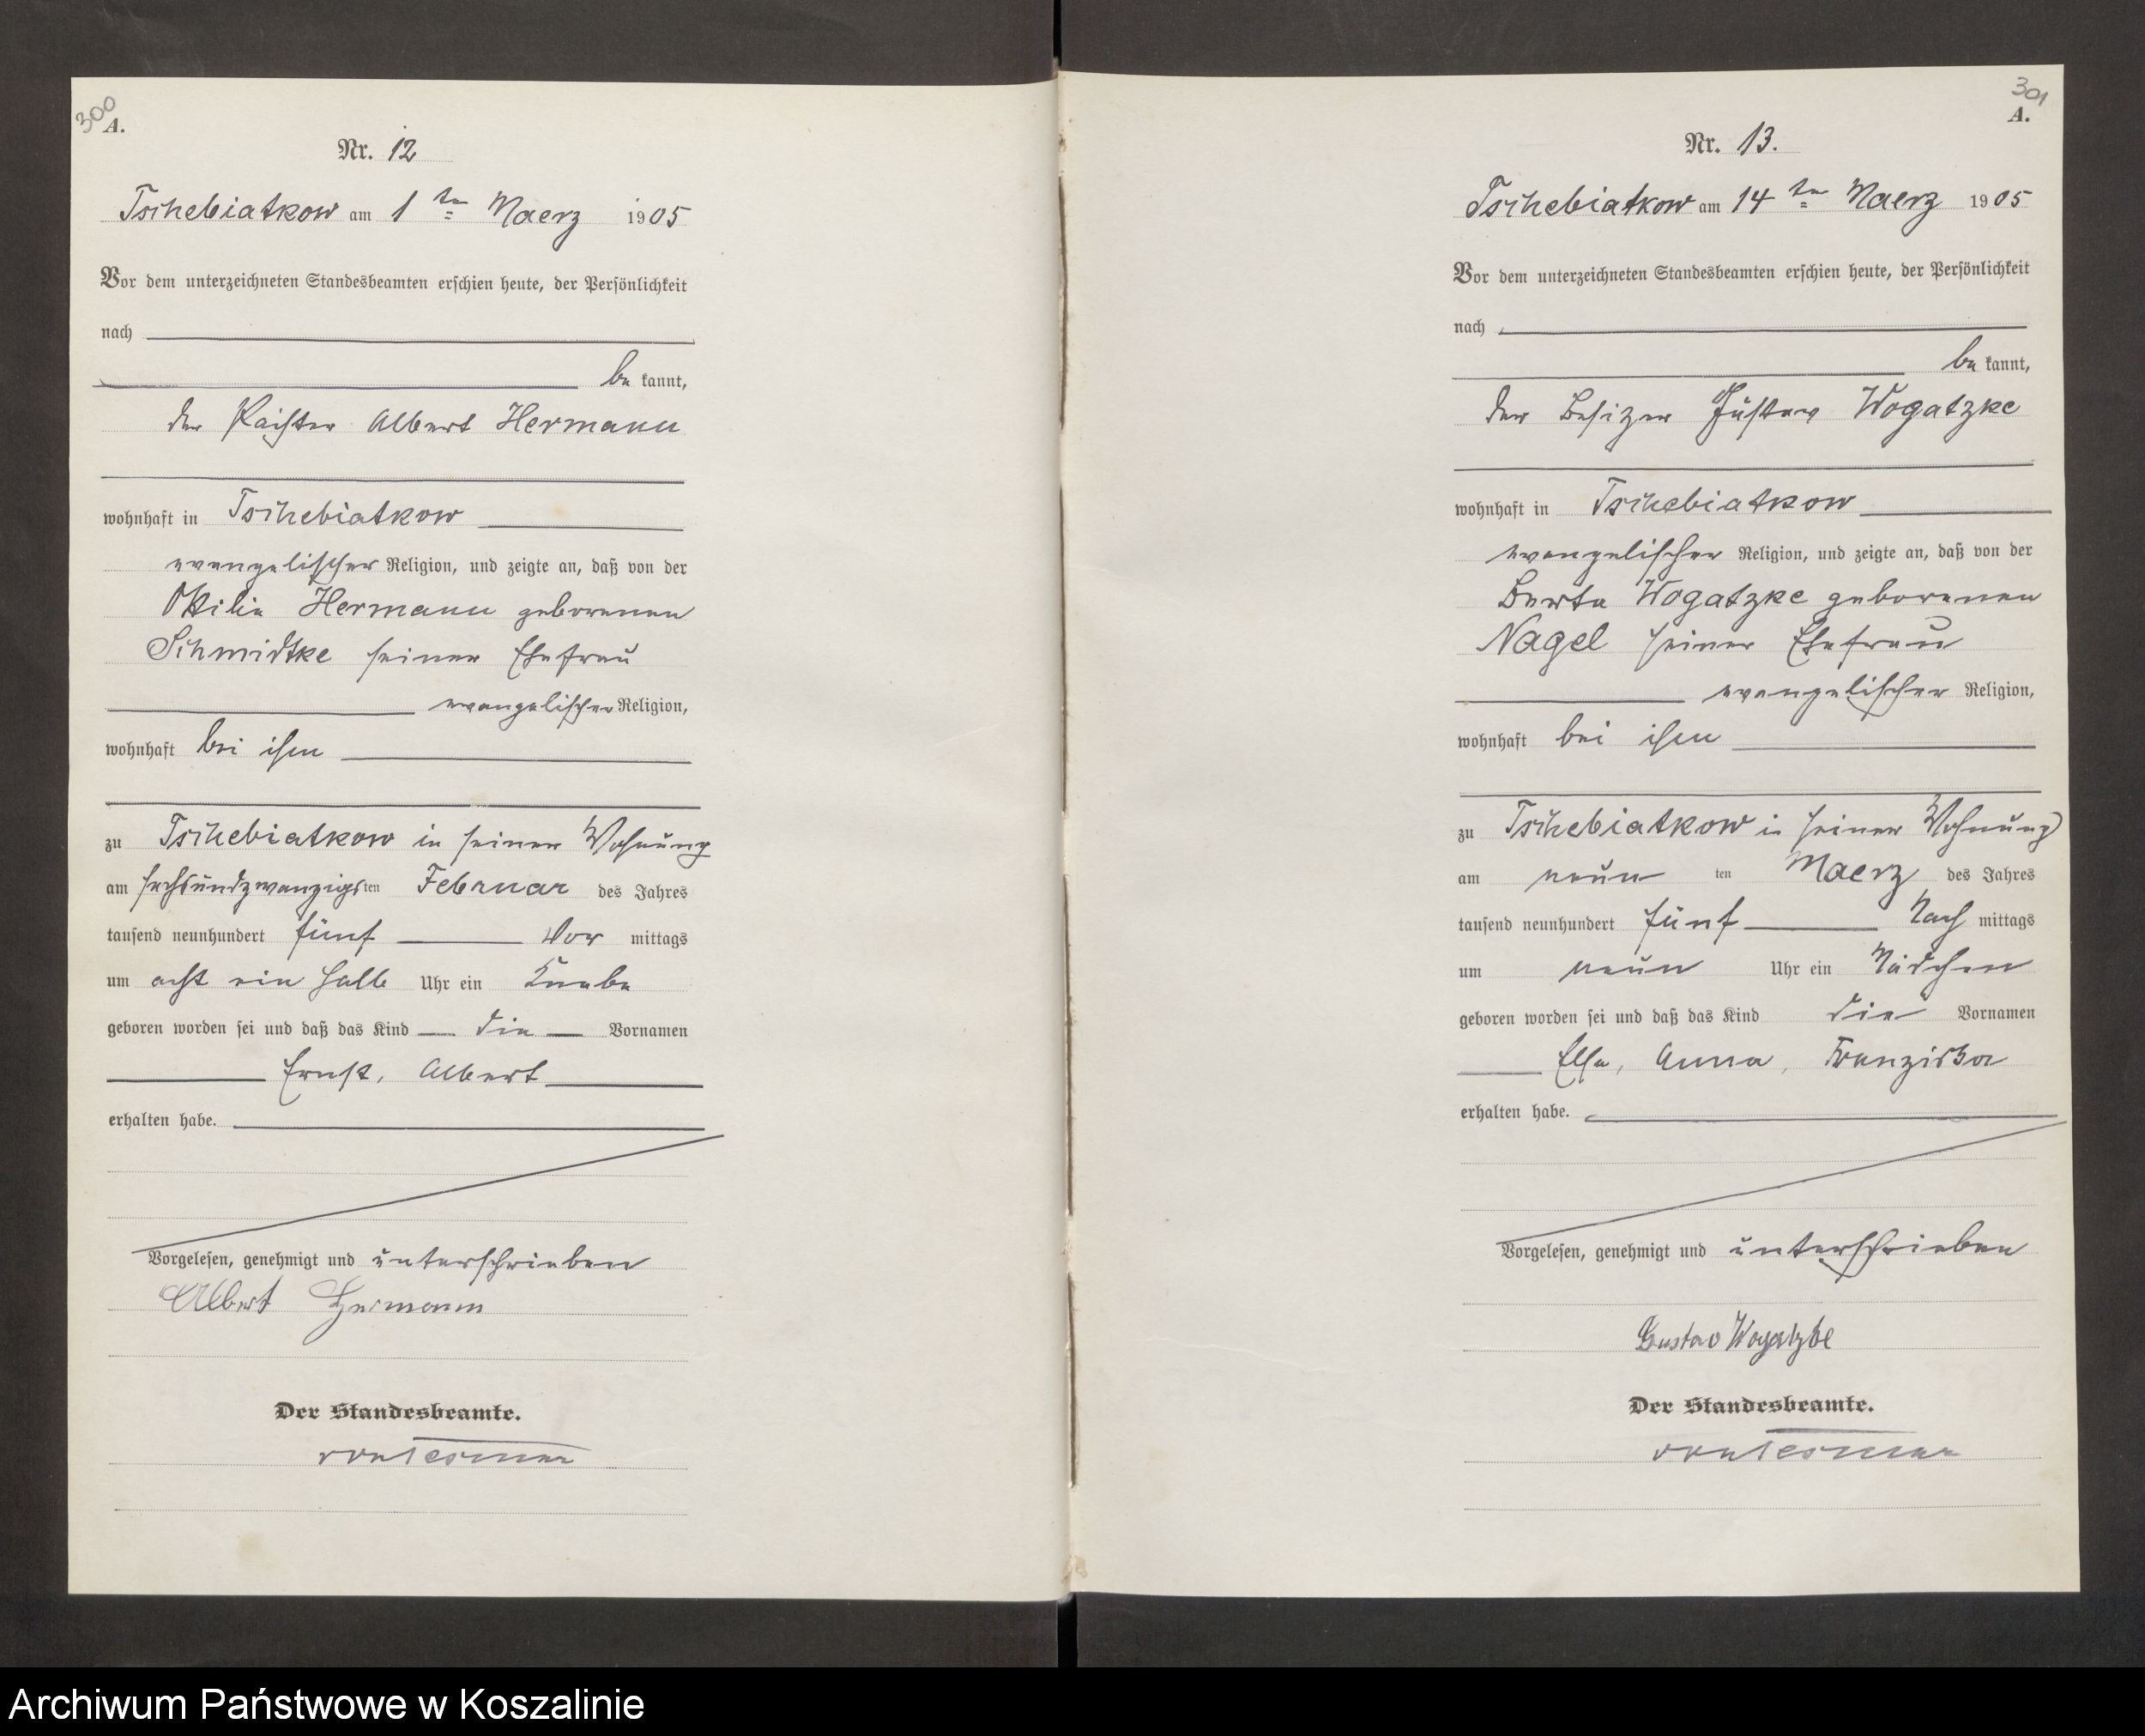 300
A.
Nr. 12
Tschebiatkow am 1ten Maerz 1905
Vor dem unterzeichneten Standesbeamten erschien heute, der Persönlichkeit
nach
be kannt,
der Albert Hermann
wohnhaft in Tschebiatkow
evangelischer Religion, und zeigte an, daß von der
Ottilie Hermann geborenen
Schmidtke seiner Ehefrau
evangelischer Religion,
wohnhaft bei ihm
zu Tschebiatkow in seiner Wohnung
am sechsundzwanzigsten Februar des Jahres
tausend neunhundert fünf Vor mittags
um acht ein halb Uhr ein Knabe
geboren worden sei und daß das Kind die Vornamen
Ernst, Albert
erhalten habe.
Vorgelesen, genehmigt und unterschrieben
Albert Hermann
Der Standesbeamte.
301
A.
Nr. 13.
Tschebiatkow am 14ten Maerz 1905
Vor dem unterzeichneten Standesbeamten erschien heute, der Persönlichkeit
nach
be kannt,
der Besizer Gustav Wogatzke
wohnhaft in Tschebiatkow
evangelischer Religion, und zeigte an, daß von der
Berta Wogatzke geborenen
Nagel seiner Ehefrau
evangelischer Religion,
wohnhaft bei ihm
zu Tschebiatkow in seiner Wohnung
am neun ten Maerz des Jahres
tausend neunhundert fünf Nach mittags
um neun Uhr ein Mädchen
geboren worden sei und daß das Kind die Vornamen
Else, Anna, Franziska
erhalten habe.
Vorgelesen, genehmigt und unterschrieben
Gustav Wogatzke
Der Standesbeamte.
Archiwum Państwowe w Koszalinie